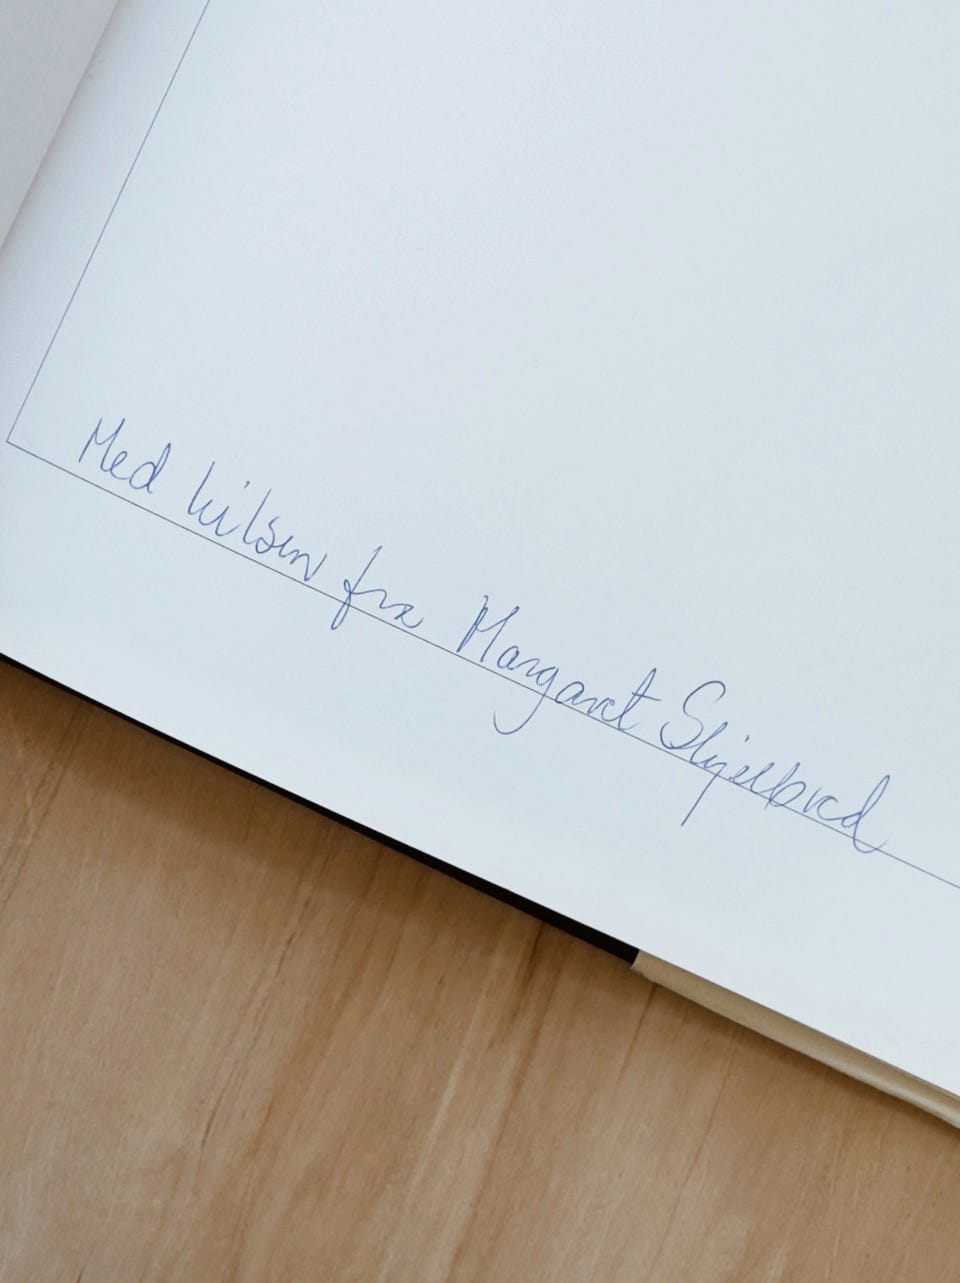 Med hilsen fra Margaret Skjelbred